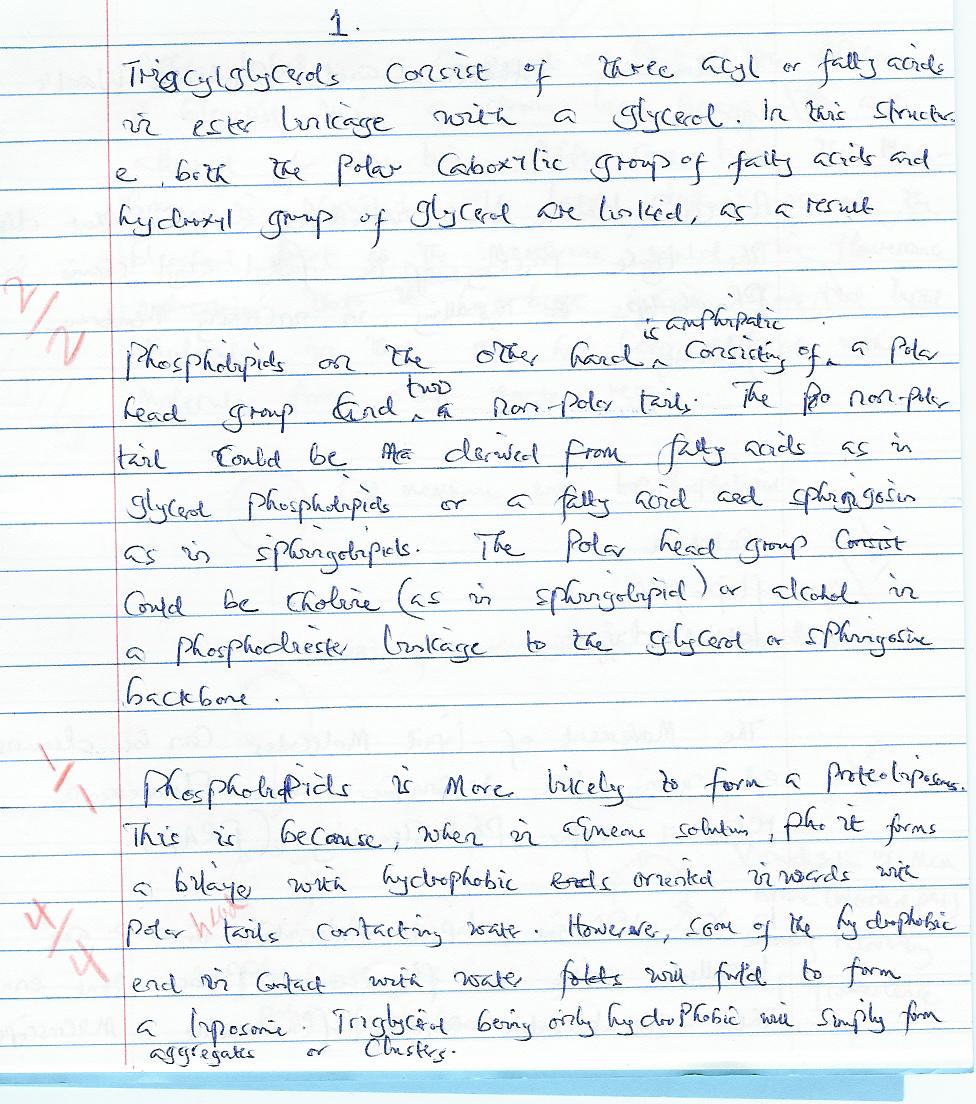 1.
Triacylglycerols consist of three acyl or fatty acids
in ester linkage with a glycerol. In this structur
e, both the polar Caboxylic group of fatty acids and
hydroxyl group of glycerol are linked, as a result
2/2
is amphipatic
Phospholipids on the other hand ^ Consisting of ^ a polar
two
head group and ^ a non-polar tails. The po non-polar
tail Could be derived from fatty acids as in
glycerol phospholipids or a fatty acid and sphingosin
as in sphingolipids. The Polar head group Consist
Could be Choline (as in sphingolipid) or alcohol in
a phosphodiester linkage to the glycerol or sphingosine
backbone.
1/1
Phospholipids is more likely to form a proteoliposome.
This is because, when in aqueous solution, pho it forms
a bilayer with hydrophobic ends oriented inwards with
4/4
head
Polar tails contacting water. However, some of the hydrophobic
end in contact with water folds will fold to form
a liposome. Triglycerol being only hydrophobic will simply form
aggregates or Clusters.